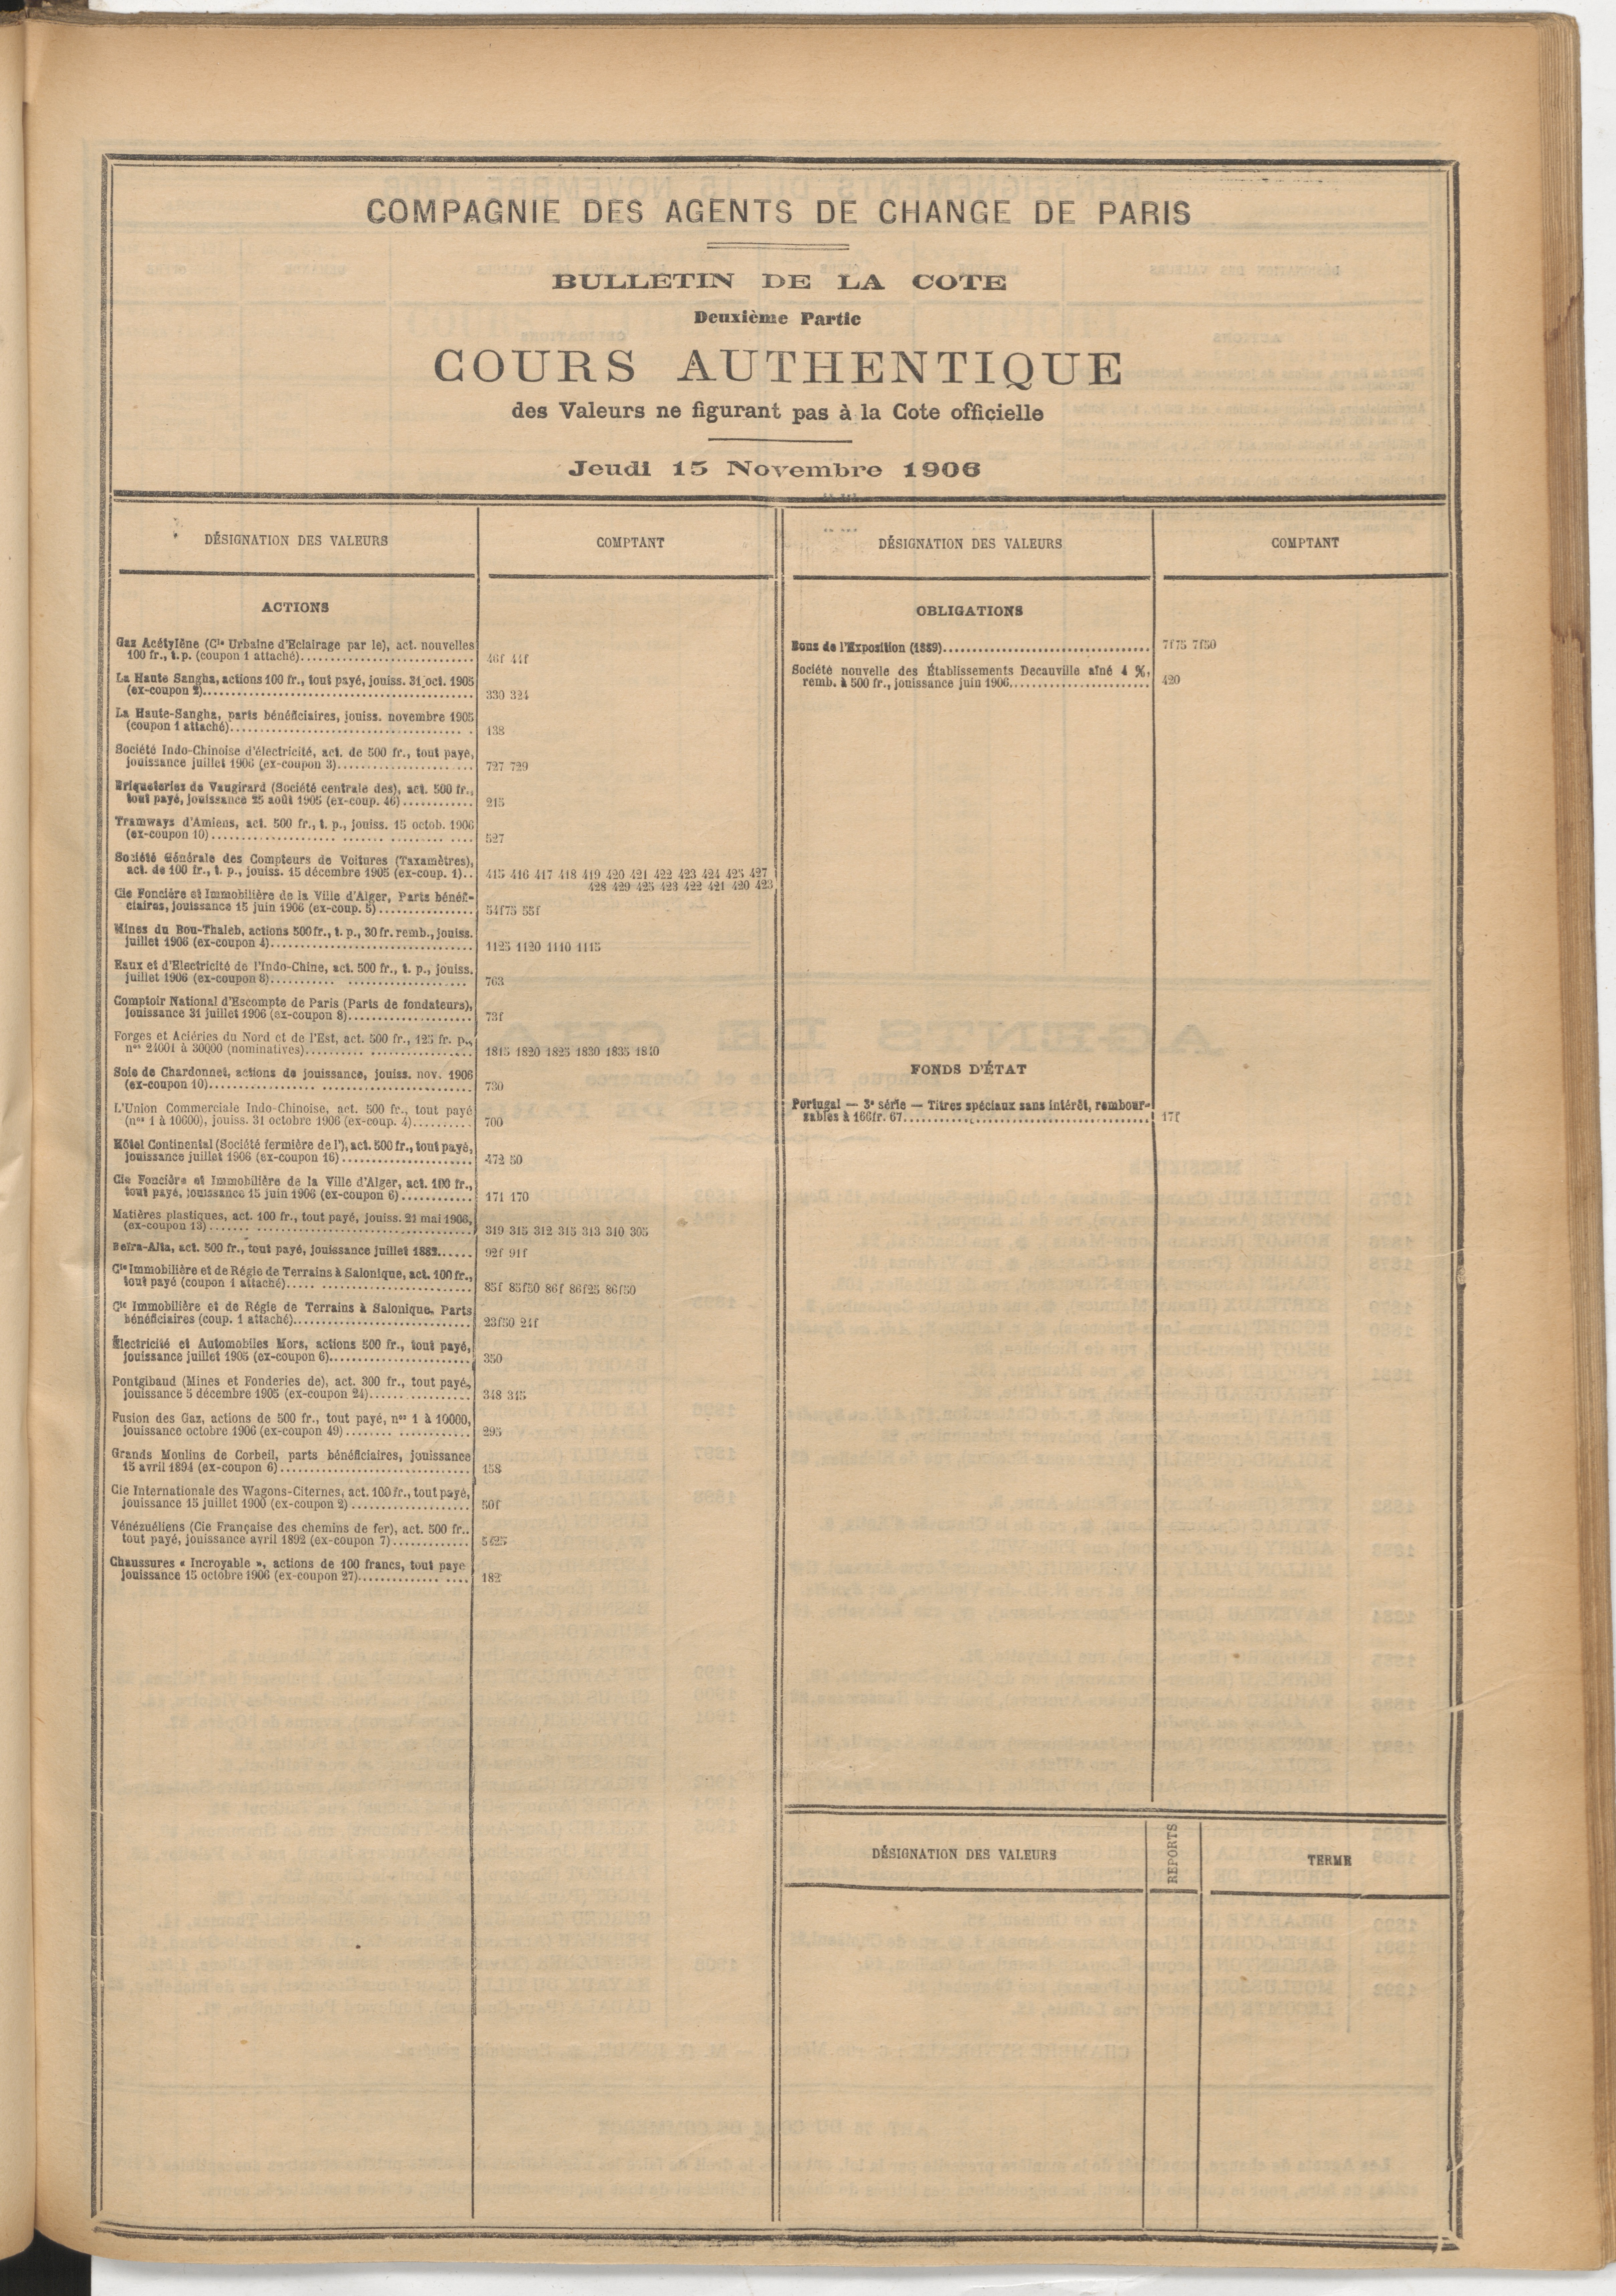 COMPAGNIE DES AGENTS DE CHANGE DE PARIS
BULLETIN DE LA COTE
Deuxième Partie
COURS AUTHENTIQUE
des Valeurs ne figurant pas à la Cote officielle
Jeudi 15 Novembre 1906
DÉSIGNATION DES VALEURS
COMPTANT
ACTIONS
Gaz Acétylène (Cie Urbaine d'Eclairage par le), act. nouvelles
100 fr., t. p. (coupon 1 attaché) 46f 44f
La Haute Sangha, actions 100 fr., tout payé, jouiss. 31 oct. 1905
(ex-coupon 2) 330 324
La Haute-Sangha, parts bénéficiaires, jouiss. novembre 1905
(coupon 1 attaché) 138
Société Indo-Chinoise d'électricité, act. de 500 fr., tout payé,
jouissance juillet 1906 (ex-coupon 3) 727 729
Briqueteries de Vaugirard (Société centrale des), act. 500 fr.,
tout payé, jouissance 25 août 1905 (ex-coup. 46) 215
Tramways d'Amiens, act. 500 fr., t. p., jouiss. 15 octob. 1906
(ex-coupon 10) 527
Société Générale des Compteurs de Voitures (Taxamètres),
act. de 100 fr., t. p., jouiss. 15 décembre 1905 (ex-coup. 1) 415 416 417 418 419 420 421 422 423 424 425 427
428 429 425 423 422 421 420 423
Cie Foncière et Immobilière de la Ville d'Alger, Parts bénéfi-
ciaires, jouissance 15 juin 1906 (ex-coup. 5) 54f75 55f
Mines du Bou-Thaleb, actions 500 fr., t. p., 30 fr. remb., jouiss.
juillet 1906 (ex-coupon 4) 1125 1120 1110 1115
Eaux et d'Electricité de l'Indo-Chine, act. 500 fr., t. p., jouiss.
juillet 1906 (ex-coupon 8) 763
Comptoir National d'Escompte de Paris (Parts de fondateurs),
jouissance 31 juillet 1906 (ex-coupon 8) 73f
Forges et Aciéries du Nord et de l'Est, act. 500 fr., 125 fr. p.,
nos 24001 à 30000 (nominatives) 1815 1820 1825 1830 1835 1840
Soie de Chardonnet, actions de jouissance, jouiss. nov. 1906
(ex-coupon 10) 730
L'Union Commerciale Indo-Chinoise, act. 500 fr., tout payé
(nos 1 à 10600), jouiss. 31 octobre 1906 (ex-coup. 4) 700
Hôtel Continental (Société fermière de l'), act. 500 fr., tout payé,
jouissance juillet 1906 (ex-coupon 16) 472 50
Cie Foncière et Immobilière de la Ville d'Alger, act. 100 fr.,
tout payé, jouissance 15 juin 1906 (ex-coupon 6) 171 170
Matières plastiques, act. 100 fr., tout payé, jouiss. 21 mai 1906,
(ex-coupon 13) 319 315 312 315 313 310 305
Beïra-Alta, act. 500 fr., tout payé, jouissance juillet 1882 92f 91f
Cie Immobilière et de Régie de Terrains à Salonique, act. 100 fr.,
tout payé (coupon 1 attaché) 85f 85f50 86f 86f25 86f50
Cie Immobilière et de Régie de Terrains à Salonique, Parts
bénéficiaires (coup. 1 attaché) 23f50 24f
Électricité et Automobiles Mors, actions 500 fr., tout payé,
jouissance juillet 1905 (ex-coupon 6) 350
Pontgibaud (Mines et Fonderies de), act. 300 fr., tout payé,
jouissance 5 décembre 1905 (ex-coupon 24) 348 345
Fusion des Gaz, actions de 500 fr., tout payé, nos 1 à 10000,
jouissance octobre 1906 (ex-coupon 49) 295
Grands Moulins de Corbeil, parts bénéficiaires, jouissance
15 avril 1894 (ex-coupon 6) 158
Cie Internationale des Wagons-Citernes, act. 100 fr., tout payé,
jouissance 15 juillet 1900 (ex-coupon 2) 50f
Vénézuéliens (Cie Française des chemins de fer), act. 500 fr.,
tout payé, jouissance avril 1892 (ex-coupon 7) 5f25
Chaussures « Incroyable », actions de 100 francs, tout payé
jouissance 15 octobre 1906 (ex-coupon 27) 182
DÉSIGNATION DES VALEURS
COMPTANT
OBLIGATIONS
Bons de l'Exposition (1889) 7f75 7f50
Société nouvelle des Établissements Decauville aîné 4 %,
remb. à 500 fr., jouissance juin 1906 420
FONDS D'ÉTAT
Portugal — 3e série — Titres spéciaux sans intérêt, rembour-
sables à 166fr. 67 17f
DÉSIGNATION DES VALEURS
REPORTS
TERME